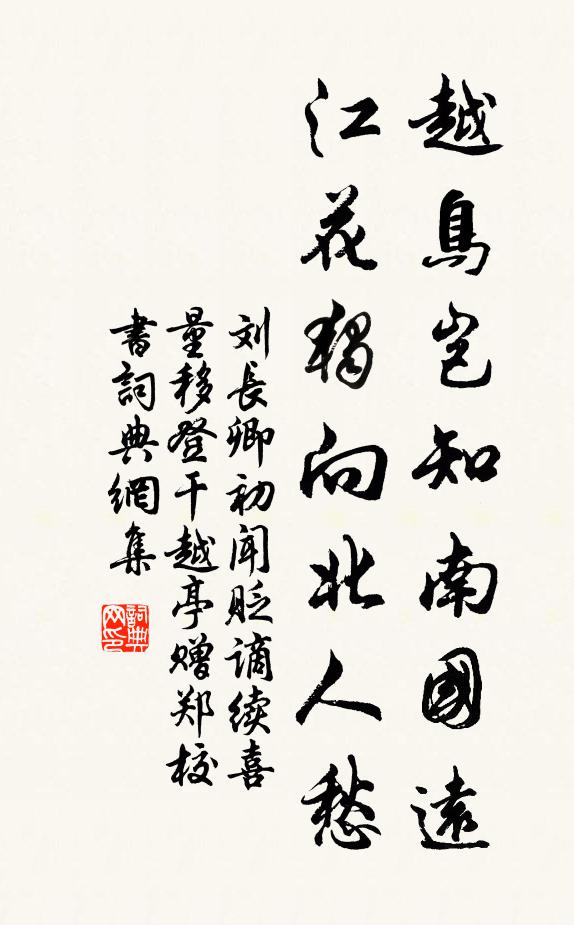 越鳥岂知南國遠
江花獨向北人愁
刘長卿初闻贬谪续喜
量移登干越亭赠郑校
書詞典網集
詞典
网印